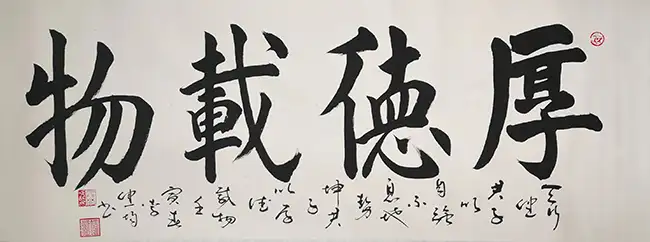 厚德載物
天行
健
君子
以
自強
不
息地
勢
坤君
子
以厚
德
載物
壬
寅春